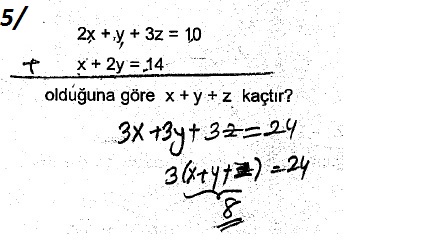 5/
2x + y + 3z = 10
+ x + 2y = 14
olduğuna göre x + y + z kaçtır?
3x + 3y + 3z = 24
3(x + y + z) = 24
8